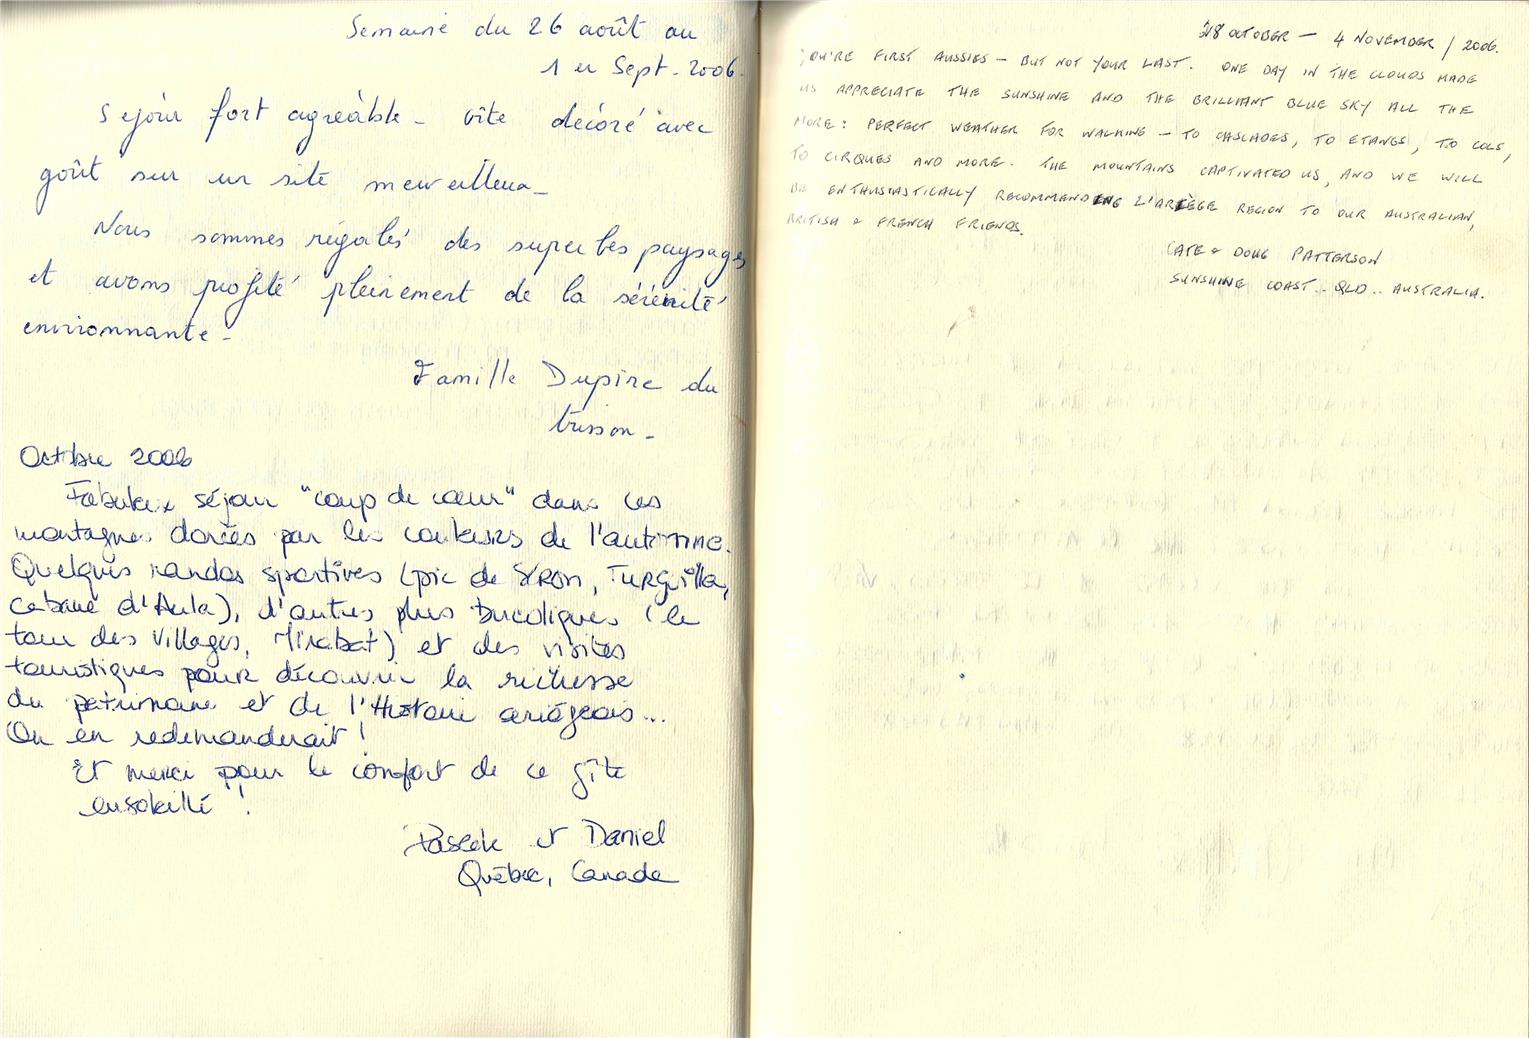 Semaine du 26 août au
1er Sept. 2006.
Séjour fort agréable - Gîte décoré avec
goût sur un site merveilleux -
Nous sommes régalés des superbes paysages
et avons profité pleinement de la sérénité
environnante -
Famille Dupire du
Octobre 2006
Fabuleux séjour "coup de cœur" dans ces
montagnes dorées par les couleurs de l'automne.
Quelques randos sportives (pic de
cabane d'Aula), d'autres plus bucoliques (le
tour des villages, Mirabat) et des visites
touristiques pour découvrir la richesse
du patrimoine et de l'Histoire ariégeois...
On en redemanderait !
Et merci pour le confort de ce gîte
ensoleillé !
Pascale et Daniel
Québec, Canada
28 OCTOBER — 4 NOVEMBER / 2006.
YOU'RE FIRST AUSSIES — BUT NOT YOUR LAST. ONE DAY IN THE CLOUDS MADE
US APPRECIATE THE SUNSHINE AND THE BRILLIANT BLUE SKY ALL THE
MORE: PERFECT WEATHER FOR WALKING — TO CASCADES, TO ETANGS, TO COLS,
TO CIRQUES AND MORE. THE MOUNTAINS CAPTIVATED US, AND WE WILL
BE ENTHUSIASTICALLY RECOMMENDING L'ARIÈGE REGION TO OUR AUSTRALIAN,
BRITISH & FRENCH FRIENDS.
CATE & DOUG PATTERSON
SUNSHINE COAST.. QLD.. AUSTRALIA.